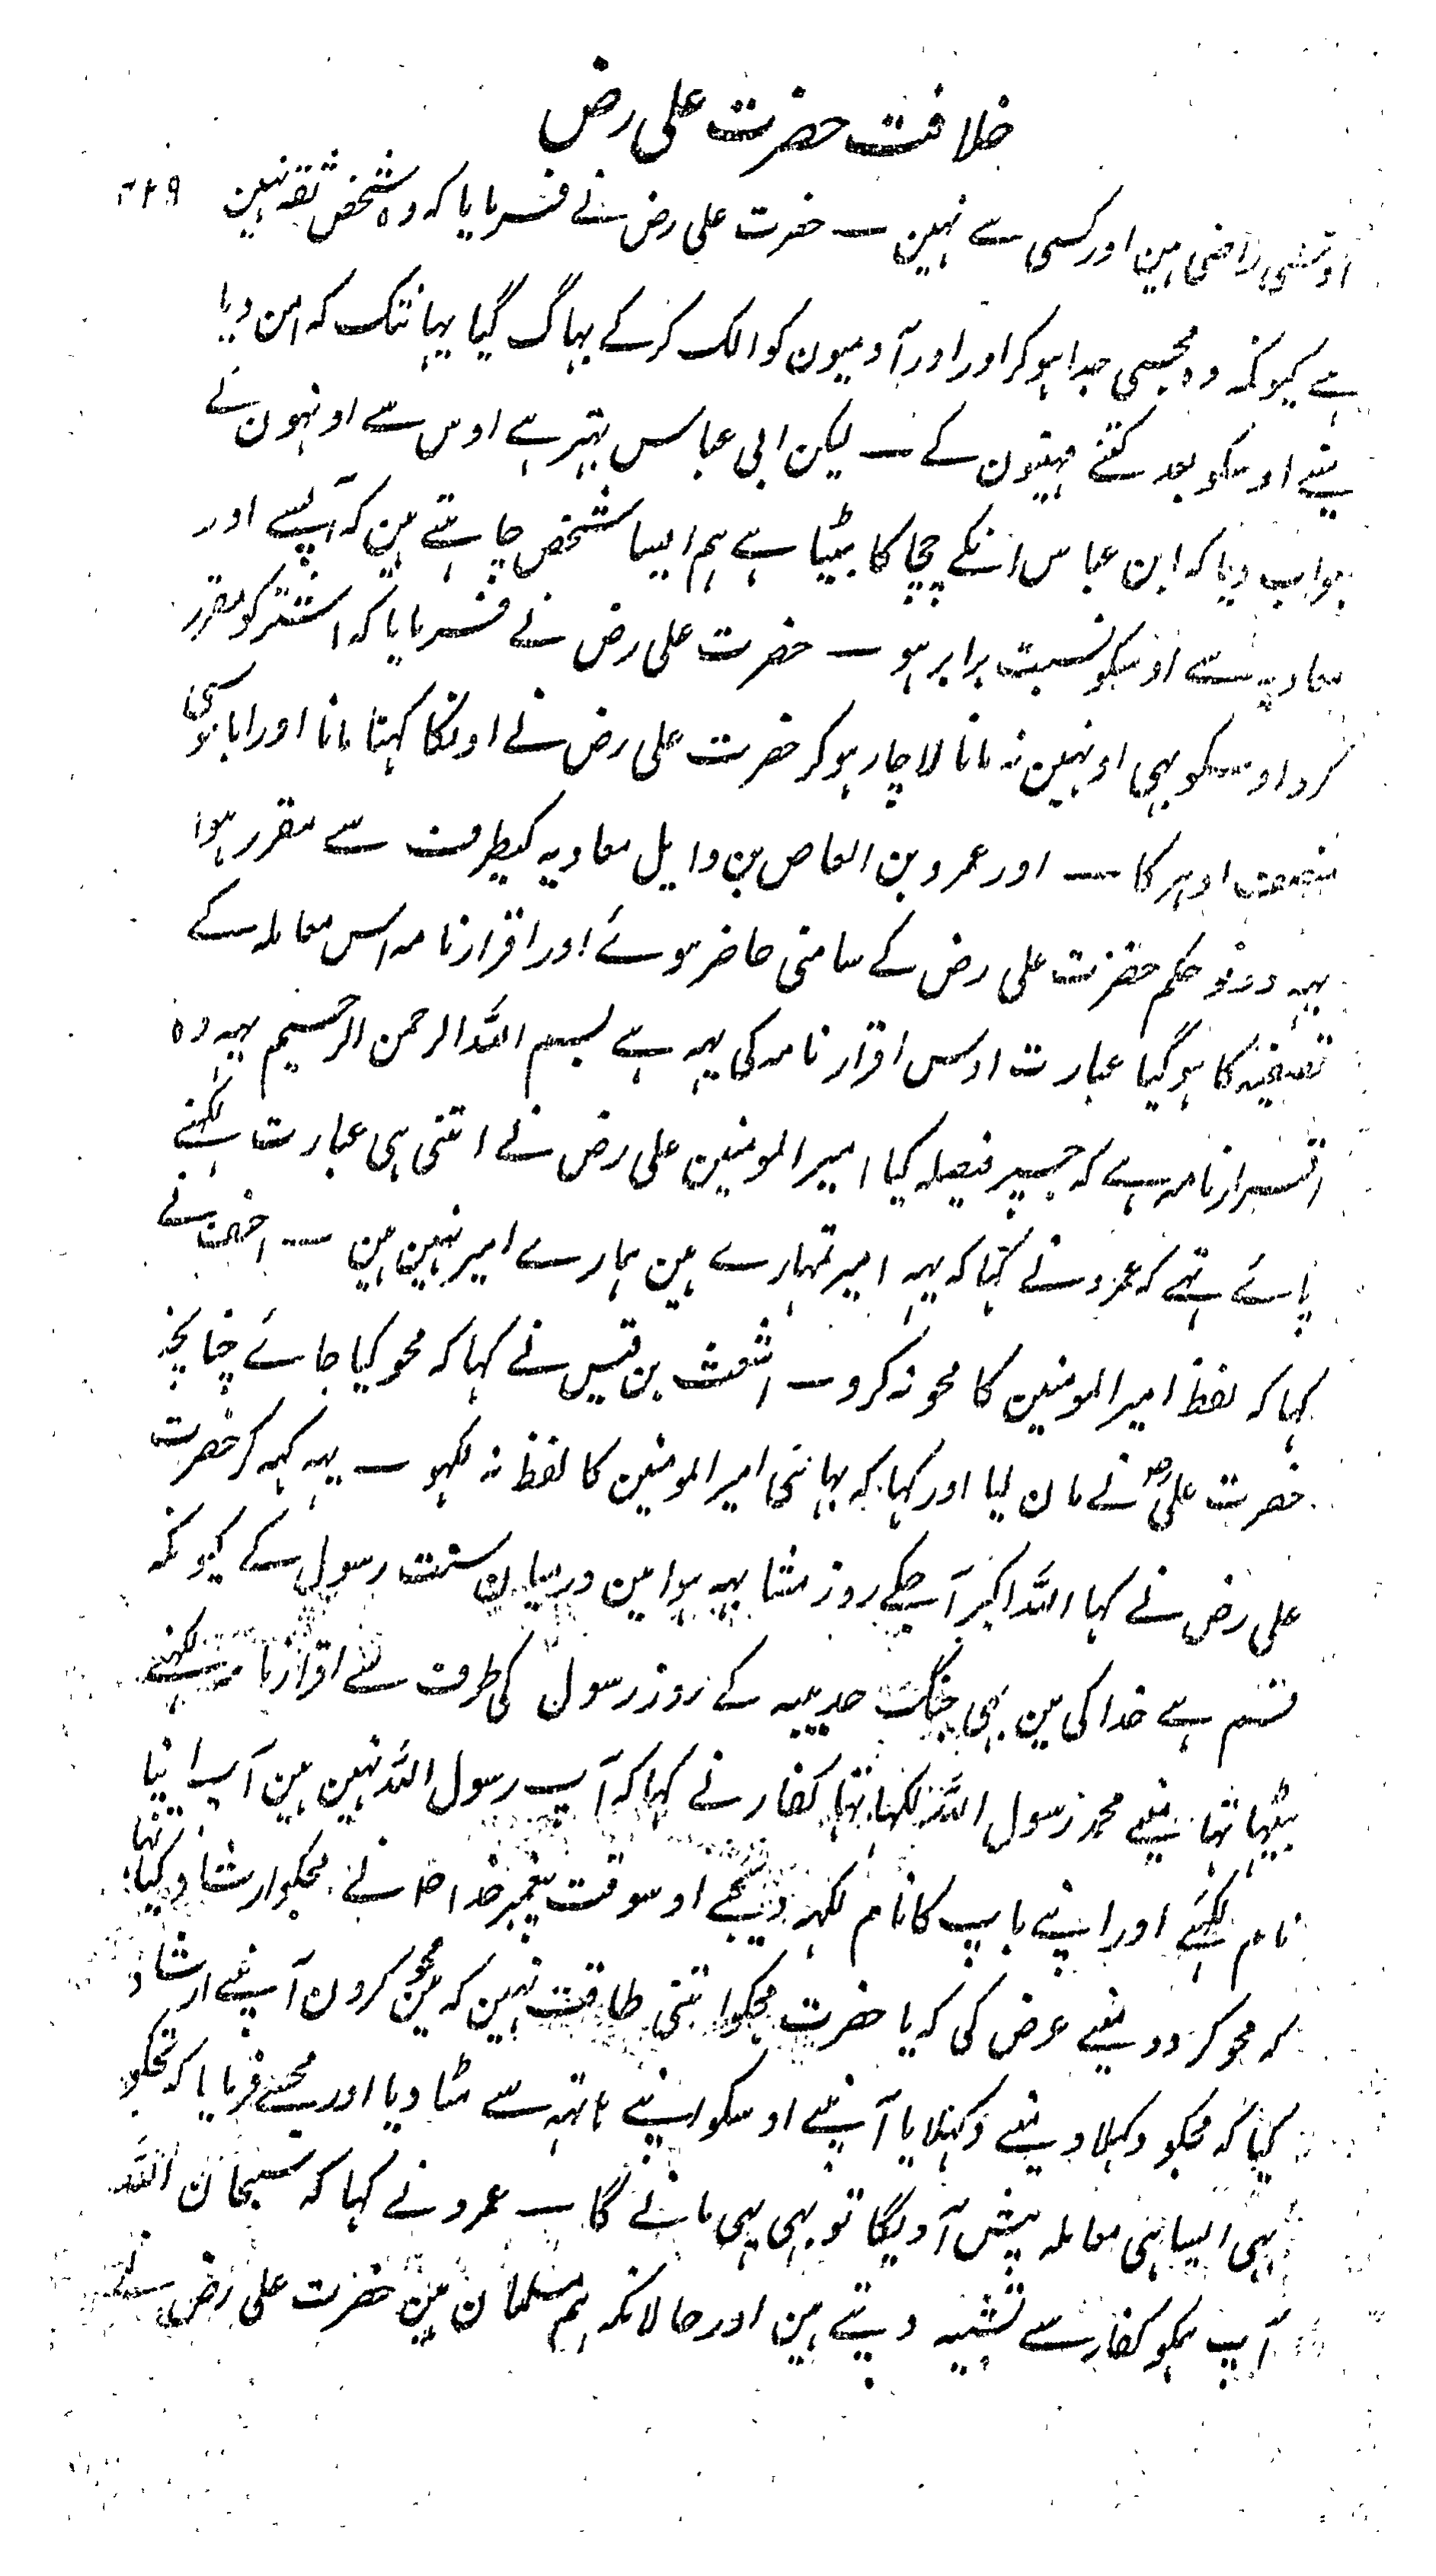 خلافت حضرت علی رض
۲۴۹
اوسی راضی ہین اور کسی سے نہین ۔ حضرت علی رض نے فرمایا کہ وہ شخص ثقہ نہین
ہے کیونکہ وہ مجہسی جدا ہوکر اور اور آدمیون کو الک کرکے بہاگ گیا یہانتک کہ امن دیا
مینے اوسکو بعد کتنے مہینون کے ۔ لیکن ابی عباس بہتر ہے اوس سے اونہون نے
جواب دیا کہ ابن عباس انکے چچا کا بیٹا ہے ہم ایسا شخص چاہتے ہین کہ آپسے اور
معاویہ سے اوسکو نسبت برابر ہو ۔ حضرت علی رض نے فرمایا کہ اشتر کو مقرر
کرو اوسکو بہی اونہین نہ مانا لاچار ہوکر حضرت علی رض نے اونکا کہنا مانا اور ابا موسی
منصف اوہر کا ۔ اور عمرو بن العاص بن وایل معاویہ کیطرف سے مقرر ہوا
یہہ دونو حکم حضرت علی رض کے سامنی حاضر ہوئے اور اقرار نامہ اس معاملہ کے
تصفیہ کا ہوگیا عبارت اوس اقرار نامہ کی یہہ ہے بسم اللہ الرحمن الرحیم یہہ وہ
اقرار نامہ ہے کہ جسپر فیصلہ کیا امیر المومنین علی رض نے اتنی ہی عبارت لکہنے
پائے تہے کہ عمرو نے کہا کہ یہہ امیر تمہارے ہین ہمارے امیر نہین ہین ۔ احنف نے
کہا کہ لفظ امیر المومنین کا محو نہ کرو ۔ اشعث بن قیس نے کہا کہ محو کیا جائے چنانچہ
حضرت علی رض نے مان لیا اور کہا کہ یہانسی امیر المومنین کا لفظ نہ لکہو ۔ یہہ کہہ کر حضرت
علی رض نے کہا اللہ اکبر آجکے روز مشابہہ ہوا مین درمیان سنت رسول کے کیونکہ
قسم ہے خدا کی مین بہی جنگ حدیبیہ کے روز رسول کی طرف سے اقرار نامہ لکہنے
بیٹہا تہا مینے محمد رسول اللہ لکہا تہا کفار نے کہا کہ آپ رسول اللہ نہین ہین آپ اپنا
نام لکہئے اور اپنے باپ کا نام لکہہ دیجے اوسوقت پیغمبر خدا نے مجکو ارشاد کیا تہا
کہ محو کردو مینے عرض کی کہ یا حضرت مجکو اتنی طاقت نہین کہ مین محو کرون آپنے ارشاد
کیا کہ مجکو دکہلاو مینے دکہلایا آپنے اوسکو اپنے ہاتہہ سے مٹا دیا اور مجسے فرمایا کہ تجکو
بہی ایسا ہی معاملہ پیش آویگا تو بہی یہی مانے گا ۔ عمرو نے کہا کہ سبحان اللہ
آپ ہمکو کفار سے تشبیہ دیتے ہین اور حالانکہ ہم مسلمان ہین حضرت علی رض نے